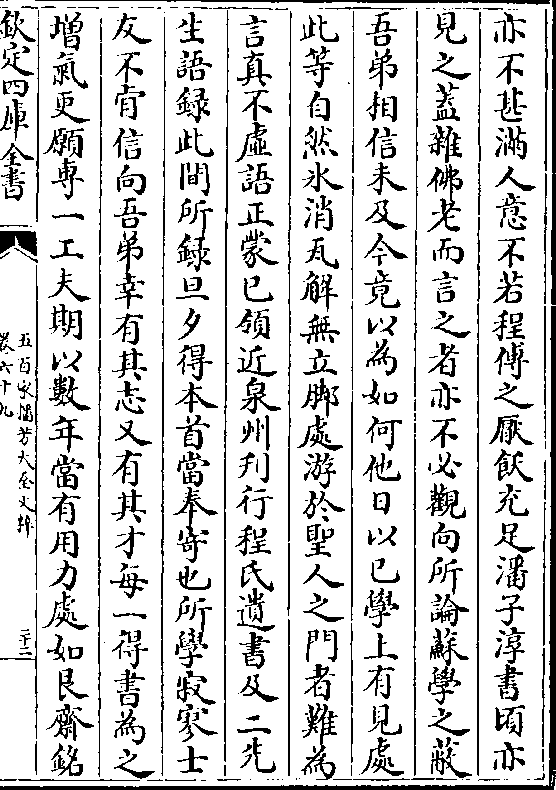 亦不甚滿人意不若程傳之厭飫充足潘子淳書頃亦
見之葢雜佛老而言之者亦不必觀向所論蘇學之蔽
吾弟相信未及今竟以為如何他日以已學上有見處
此等自然氷消瓦解無立脚處游於聖人之門者難為
言真不虚語正蒙已領近泉州刋行程氏遺書及二先
生語録此間所録旦夕得本首當奉寄也所學寂寥士
友不肯信向吾弟幸有其志又有其才每一得書為之
増氣更願専一工夫期以數年當有用力處如艮齋銘
欽定四庫全書
五百家播芳大全文粹
卷六十九
三十二